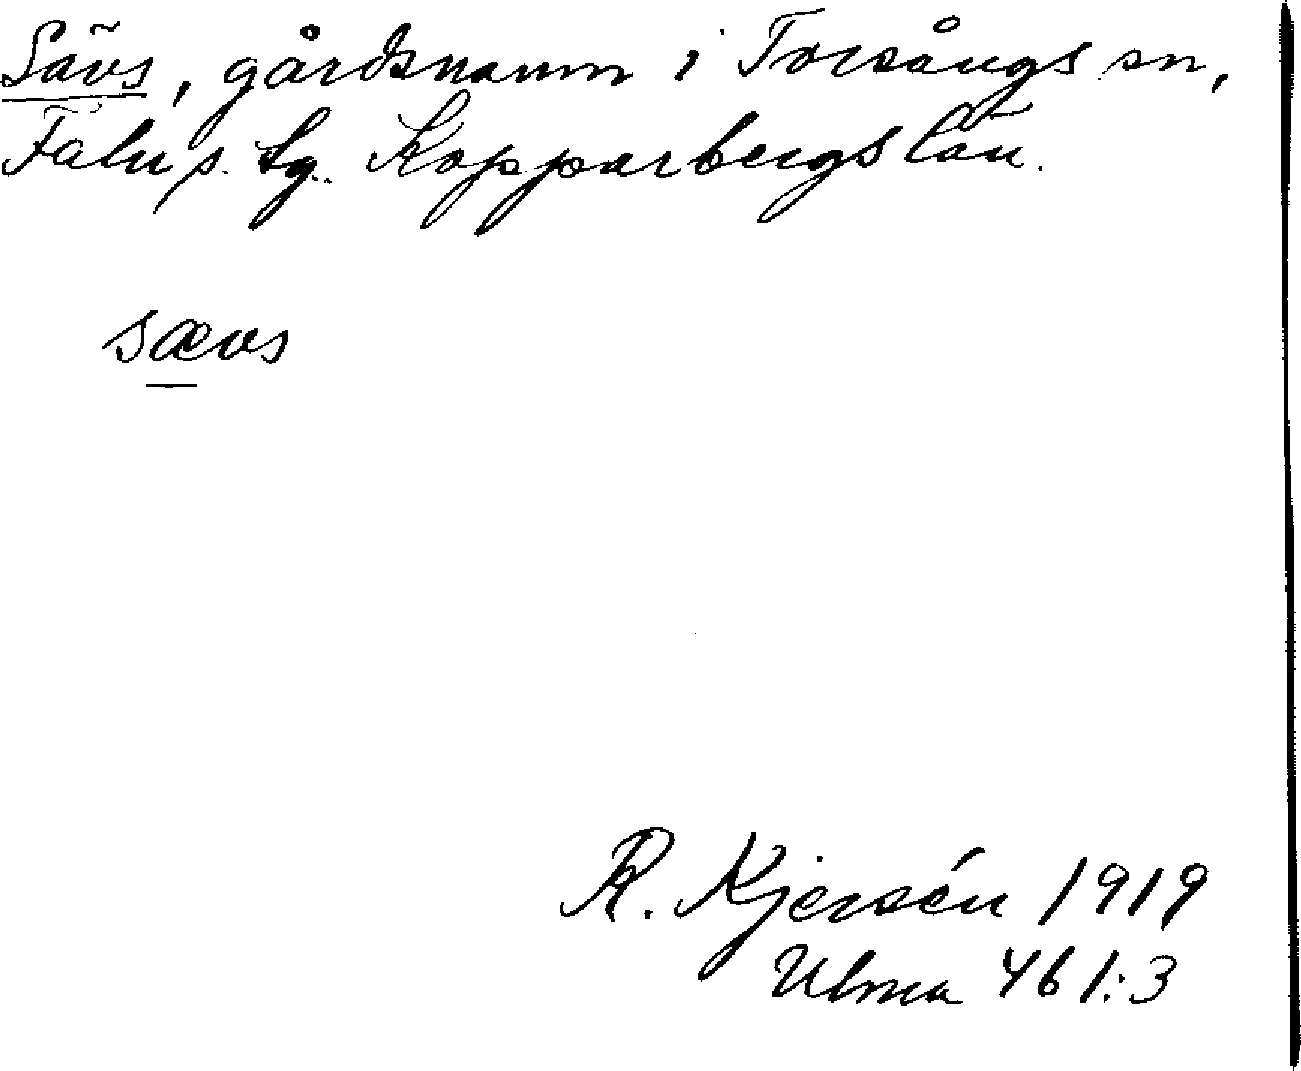 Sävs, gårdsnamn i Torsångs sn,
Falu s. tg. Kopparbergs län.
sævs
R. Kjersén 1919
Ulma 461:3